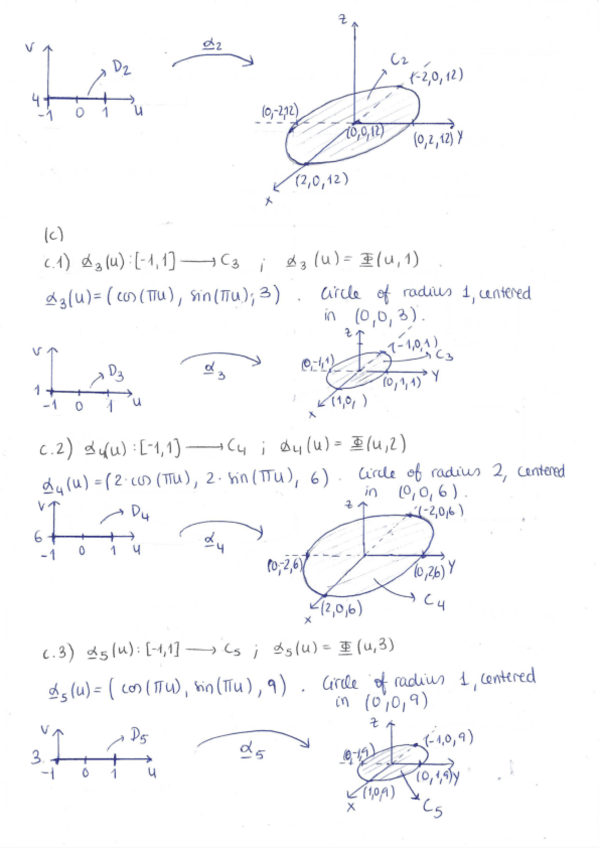 z
v
D₂
α₂
C₂
(-2,0,12)
(0,-2,12)
4
-1 0 1 u
(0,0,12)
(0,2,12) y
(2,0,12)
x
(c)
c.1) α₃(u):[-1,1] ⟶ C₃ ; α₃(u)=Φ(u,1).
α₃(u)=(cos(πu), sin(πu), 3). Circle of radius 1, centered
in (0,0,3).
z
v
D₃
α₃
(0,-1,1)
(-1,0,1)
C₃
1
-1 0 1 u
(0,1,1) y
(1,0, )
x
c.2) α₄(u):[-1,1] ⟶ C₄ ; α₄(u)=Φ(u,2)
α₄(u)=(2·cos(πu), 2·sin(πu), 6). Circle of radius 2, centered
in (0,0,6).
z
v
D₄
α₄
(-2,0,6)
6
-1 0 1 u
(0,-2,6)
(0,2,6) y
(2,0,6)
x
C₄
c.3) α₅(u):[-1,1] ⟶ C₅ ; α₅(u)=Φ(u,3)
α₅(u)=(cos(πu), sin(πu), 9). Circle of radius 1, centered
in (0,0,9)
z
v
D₅
α₅
(-1,0,9)
(0,-1,9)
3
-1 0 1 u
(0,1,9) y
(1,0,9)
x
C₅